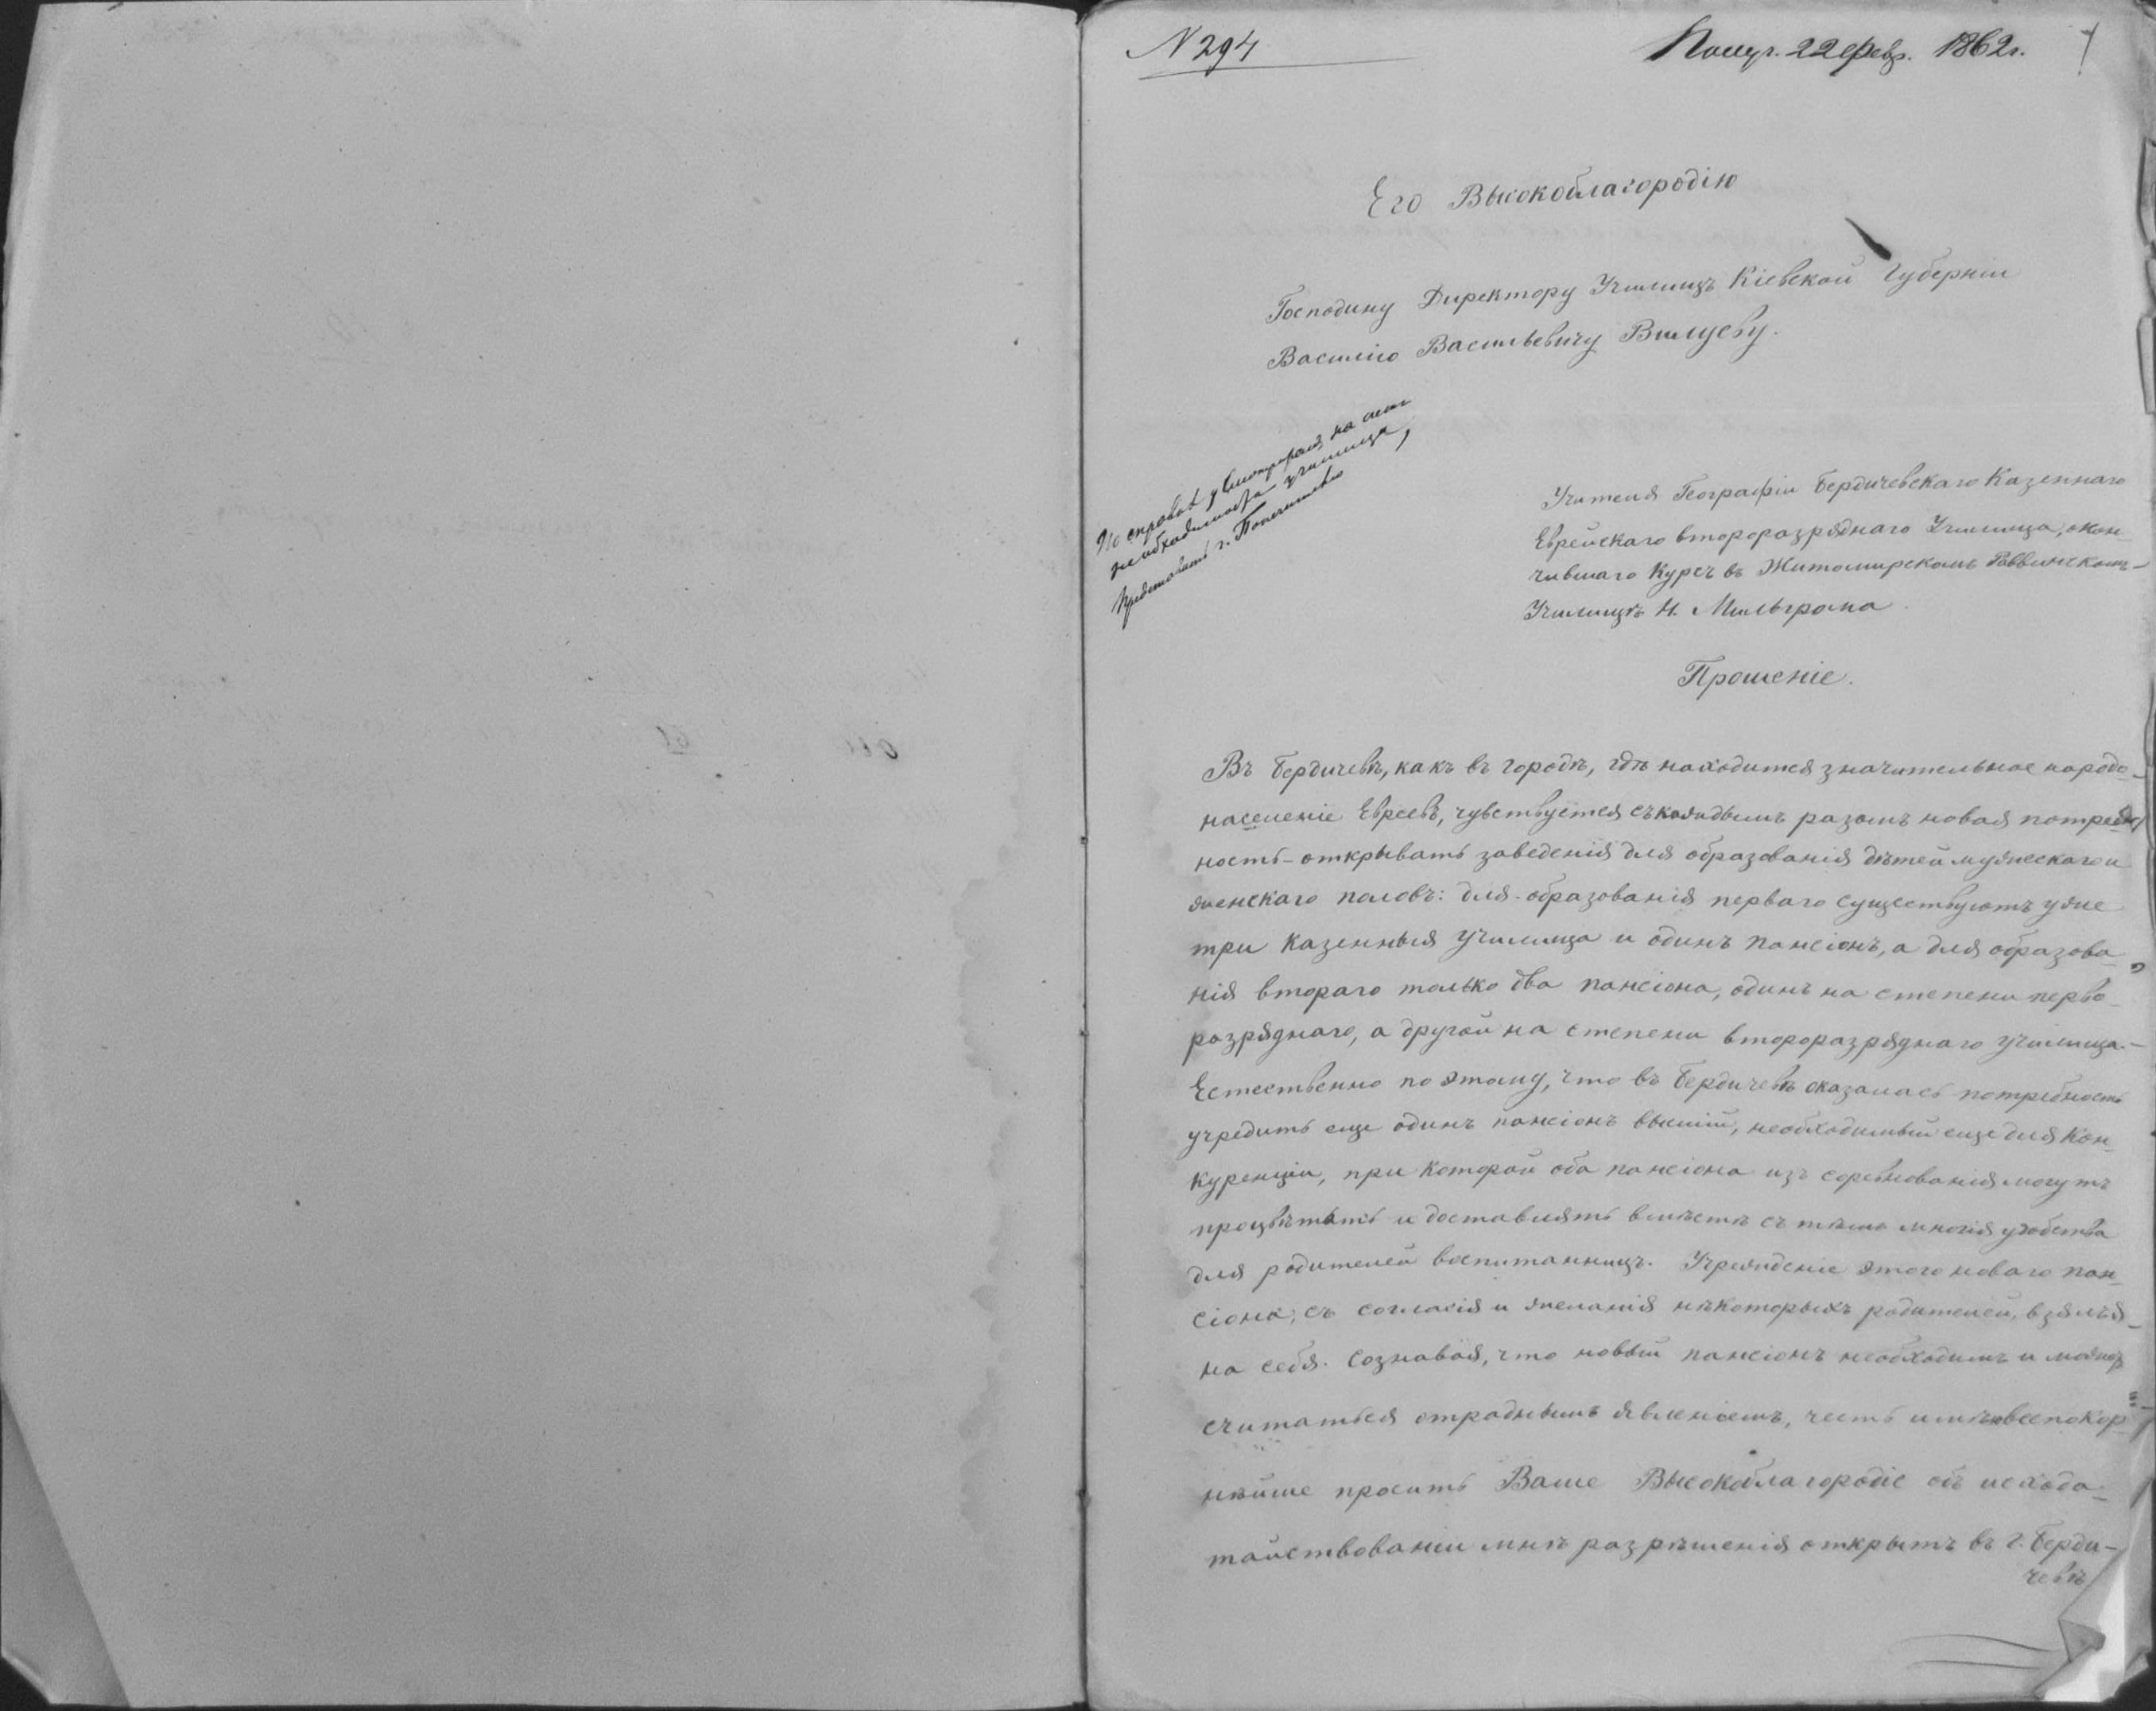 N 294
Получ. 22 февр. 1862 г.
Его Высокоблагородію
Господину Директору Училищъ Кіевской Губерніи
Василію Васильевичу
По справкѣ на
необходимость училища,
представить г. Попечителю
Учителя Географіи Бердичевскаго Казеннаго
Еврейскаго второразряднаго Училища, окон-
чившаго Курсъ въ Житомирскомъ Раввинскомъ
Училищѣ Н. Мильграма
Прошеніе.
Въ Бердичевѣ, какъ въ городѣ, гдѣ находится значительное народо-
населеніе Евреевъ, чувствуется съ каждымъ разомъ новая потреб-
ность - открывать заведенія для образованія дѣтей мужескаго и
женскаго половъ: для образованія перваго существуютъ уже
три казенныя училища и одинъ пансіонъ, а для образова-
нія втораго только два пансіона, одинъ на степени перво-
разряднаго, а другой на степени второразряднаго училища. -
Естественно по этому, что въ Бердичевѣ оказалась потребность
учредить еще одинъ пансіонъ высшій, необходимый еще для Кон-
куренціи, при которой оба пансіона изъ соревнованія могутъ
процвѣтать и доставлять вмѣстѣ съ тѣмъ многія удобства
для родителей воспитанницъ. Учрежденіе этого новаго пан-
сіона, съ согласія и желанія нѣкоторыхъ родителей, взялъ я
на себя. Сознавая, что новый пансіонъ необходимъ и можетъ
считаться отраднымъ явленіемъ, честь имѣю всепокор-
нѣйше просить Ваше Высокоблагородіе объ исхода-
тайствованіи мнѣ разрѣшенія открыть въ г. Берди-
чевѣ